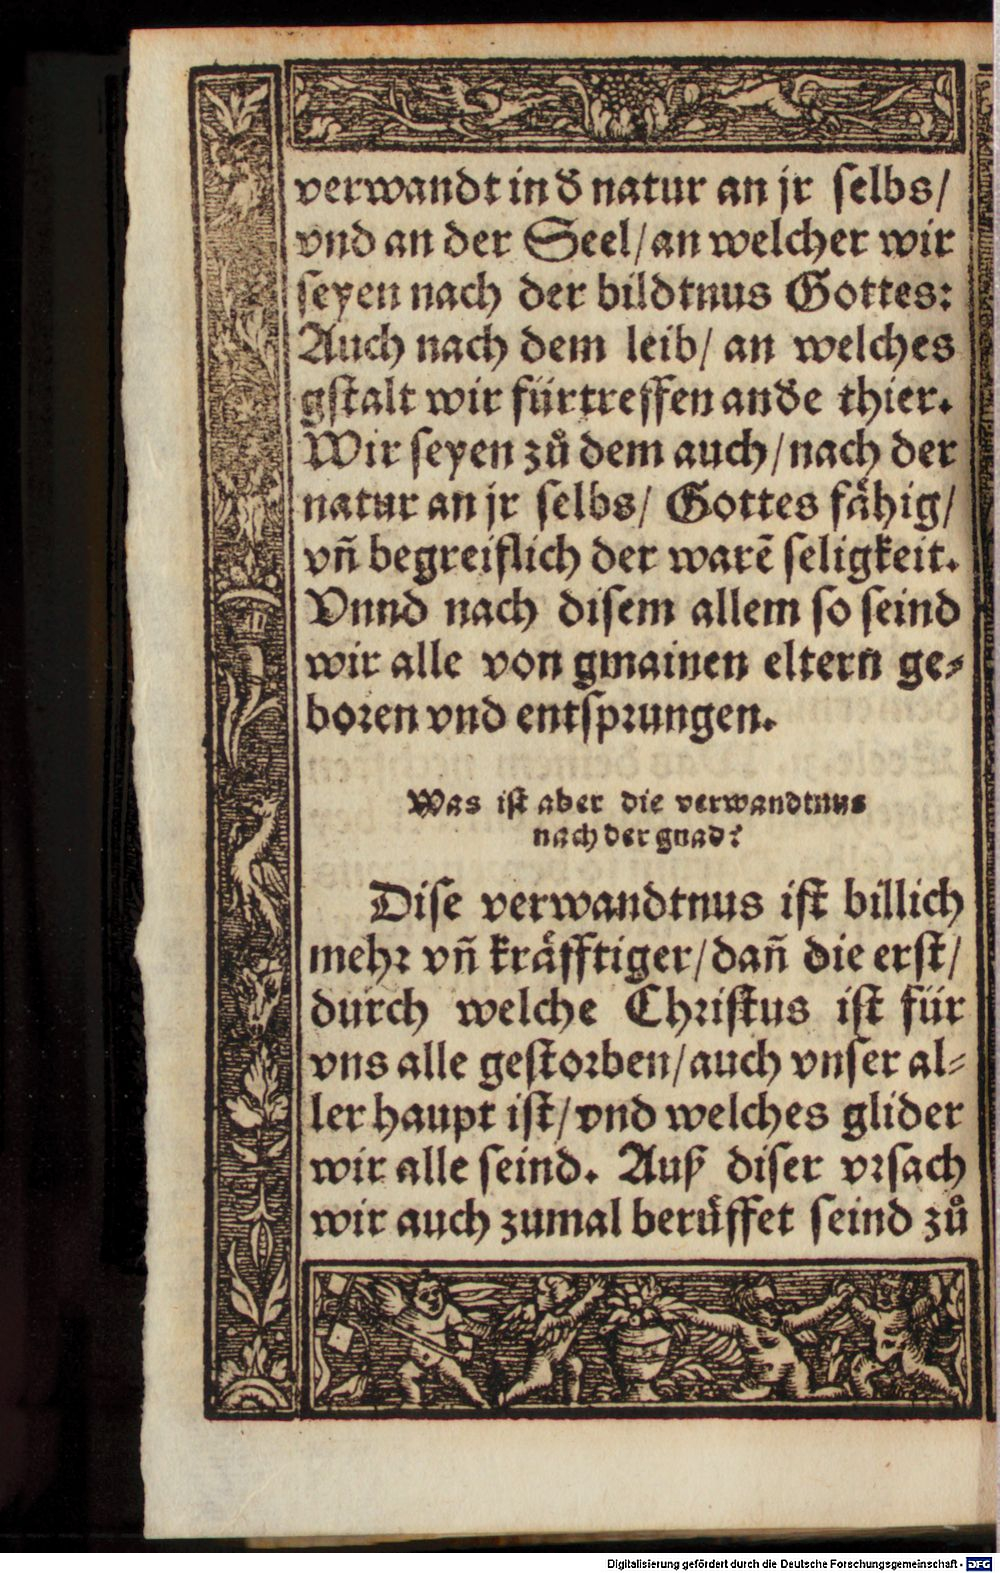 verwandt in đ natur an jr ſelbs/
vnd an der Seel/an welcher wir
ſeyen nach der bildtnus Gottes:
Auch nach dem leib/ an welches
gſtalt wir fürtreffen anđe thier.
Wir ſeyen zů dem auch/nach der
natur an jr ſelbs/ Gottes fähig/
vñ begreiflich der warē ſeligkeit.
Vnnd nach diſem allem ſo ſeind
wir alle von gmainen eltern ge⸗
boꝛen vnd entſpꝛungen.
Was iſt aber die verwandtnus
nach der gnad?
Diſe verwandtnus iſt billich
mehꝛ vñ kräfftiger/dañ die erſt/
durch welche Chꝛiſtus iſt für
vns alle geſtoꝛben/auch vnſer al⸗
ler haupt iſt/vnd welches glider
wir alle ſeind. Auß diſer vꝛſach
wir auch zumal berüffet ſeind zů
Digitalisierung gefördert durch die Deutsche Forschungsgemeinschaft - DFG